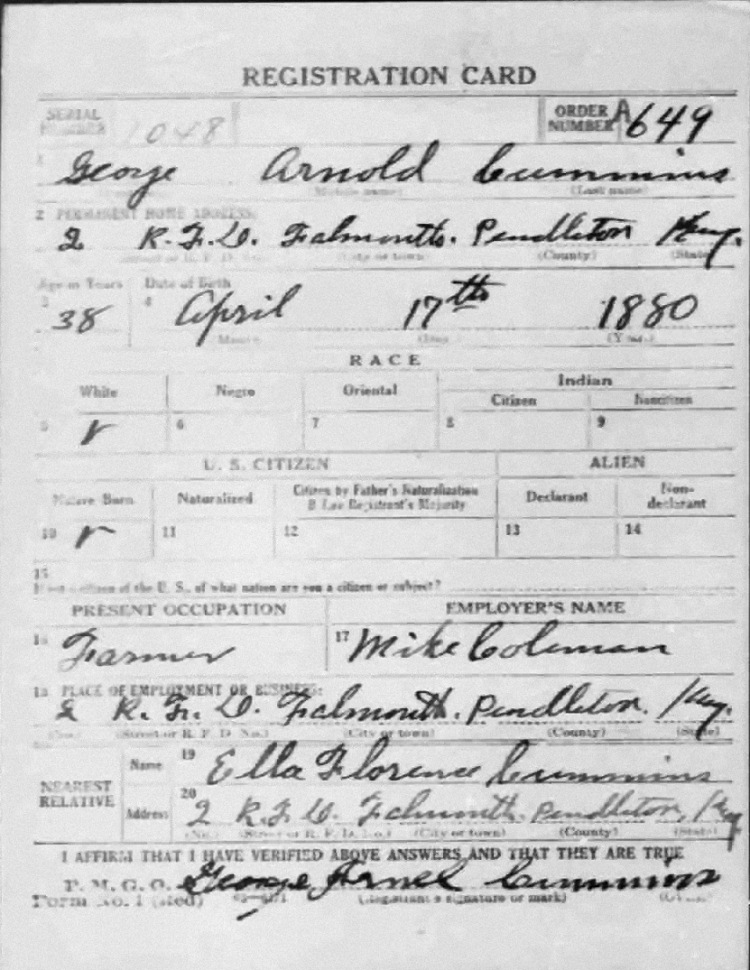 REGISTRATION CARD
SERIAL NUMBER 1048 ORDER NUMBER A649
1 George Arnold Cummins
(Middle name) (Last name)
2 PERMANENT HOME ADDRESS:
2 R.F.D. Falmouth. Pendleton Ky.
(Street or R. F. D. No.) (City or town) (County) (State)
Age in Years Date of Birth
3 38 4 April 17th 1880
(Month) (Day) (Year)
RACE
White Negro Oriental Indian
Citizen Noncitizen
5 ✓ 6 7 8 9
U. S. CITIZEN ALIEN
Native Born Naturalized Citizen by Father's Naturalization Before Registrant's Majority Declarant Non-declarant
10 ✓ 11 12 13 14
15
If not a citizen of the U. S., of what nation are you a citizen or subject?
PRESENT OCCUPATION EMPLOYER'S NAME
16 Farmer 17 Mike Coleman
18 PLACE OF EMPLOYMENT OR BUSINESS:
2 R. F. D. Falmouth. Pendleton. Ky.
(No.) (Street or R. F. D. No.) (City or town) (County) (State)
NEAREST RELATIVE
Name 19 Ella Florence Cummins
Address 20 2 R.F.D. Falmouth. Pendleton, Ky
(No.) (Street or R. F. D. No.) (City or town) (County) (State)
I AFFIRM THAT I HAVE VERIFIED ABOVE ANSWERS AND THAT THEY ARE TRUE
P. M. G. O. George Arnel Cummins
Form No. 1 (Red) (Registrant's signature or mark)